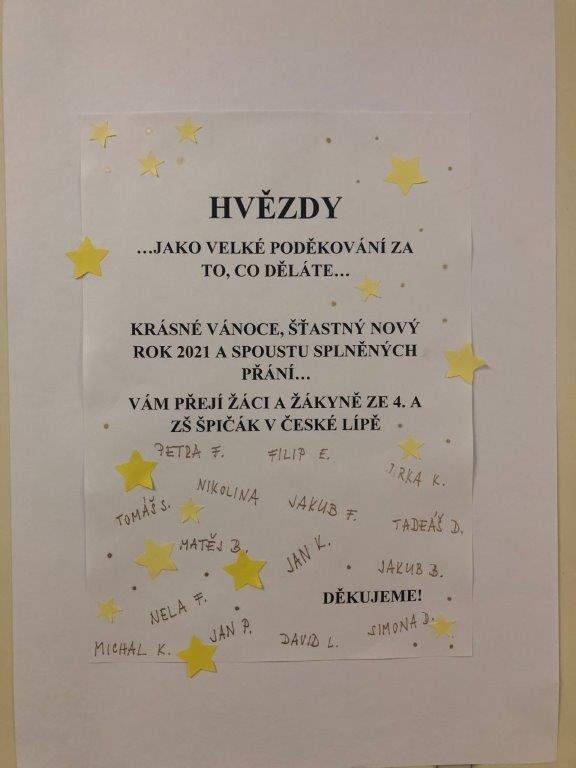 HVĚZDY
…JAKO VELKÉ PODĚKOVÁNÍ ZA
TO, CO DĚLÁTE…
KRÁSNÉ VÁNOCE, ŠŤASTNÝ NOVÝ
ROK 2021 A SPOUSTU SPLNĚNÝCH
PŘÁNÍ…
VÁM PŘEJÍ ŽÁCI A ŽÁKYNĚ ZE 4. A
ZŠ ŠPIČÁK V ČESKÉ LÍPĚ
PETRA F.
FILIP E.
JIRKA K.
NIKOLINA
TOMÁŠ S.
JAKUB F.
TADEÁŠ D.
MATĚJ B.
JAN K.
JAKUB B.
NELA F.
DĚKUJEME!
MICHAL K.
JAN P.
DAVID L.
SIMONA D.